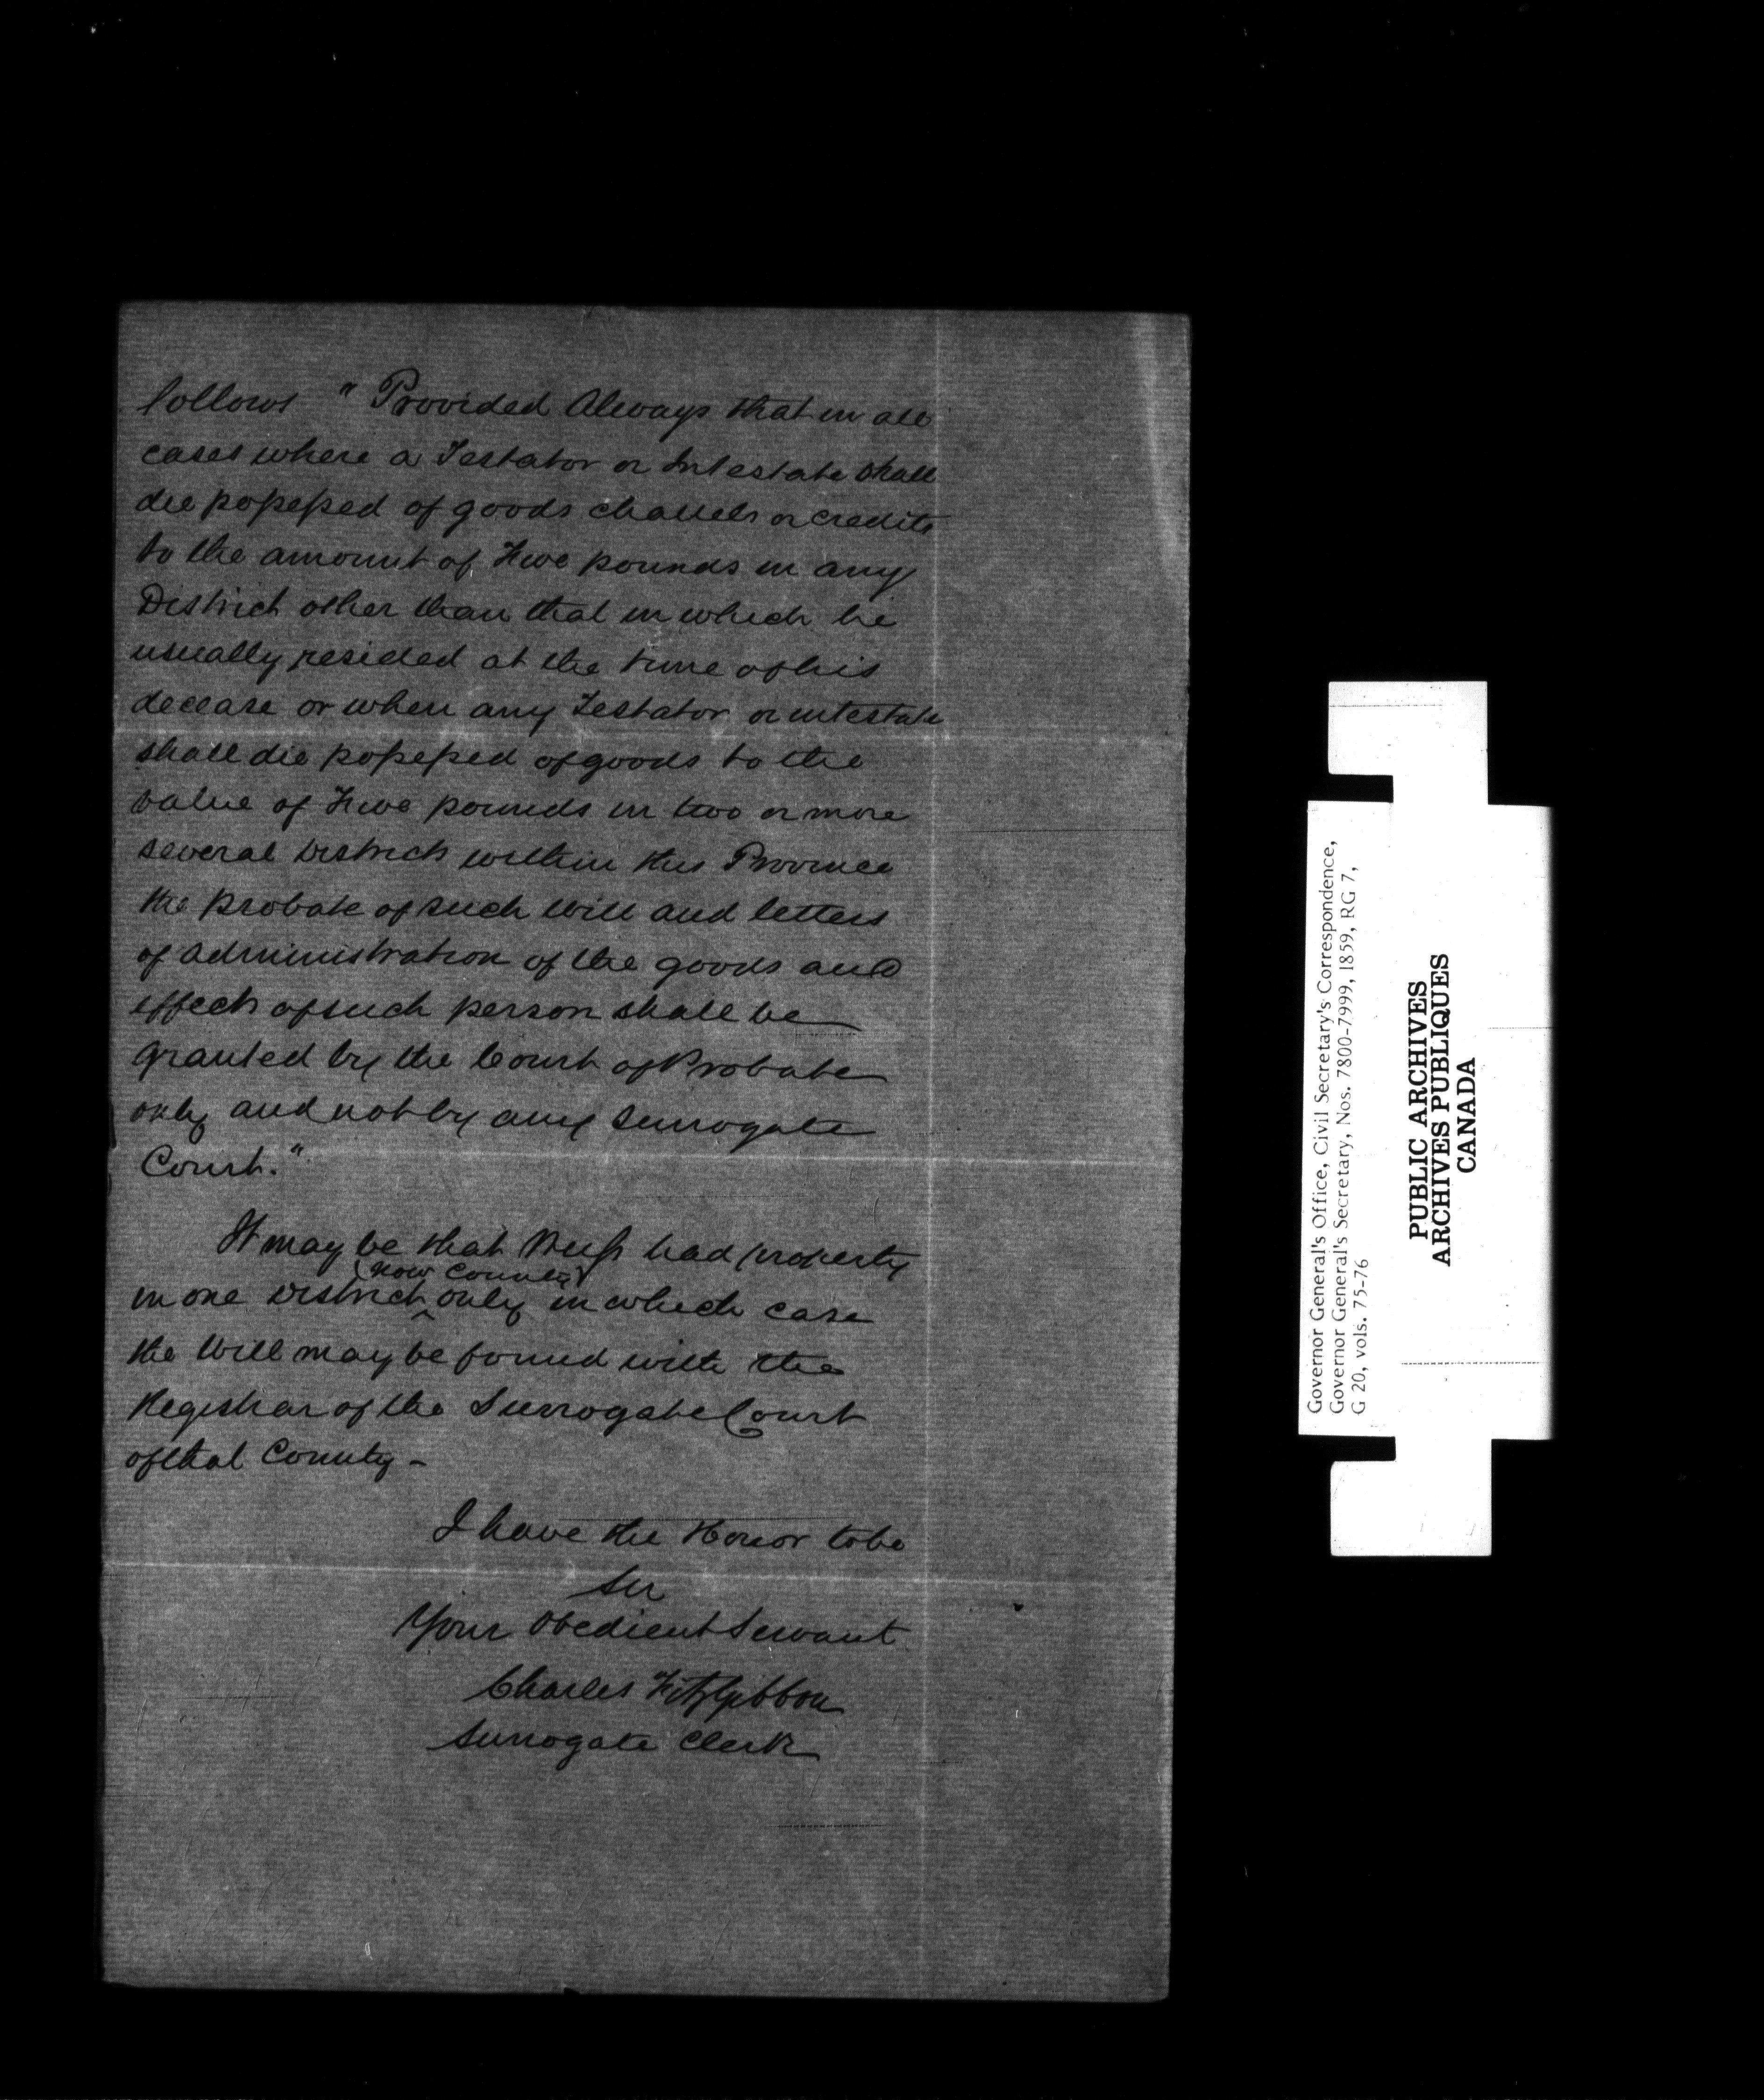 follows "Provided Always that in all
cases where a Testator or Intestate shall
die possessed of goods chattels or credits
to the amount of Five pounds in any
District other than that in which he
usually resided at the time of his
decease or when any Testator or intestate
shall die possessed of goods to the
value of Five pounds in two or more
several Districts within this Province
the probate of such Will and letters
of administration of the goods and
effects of such person shall be
granted by the Court of Probate
only and not by any Surrogate
Court."
It may be that had property
in one District (now County) only in which case
the Will may be found with the
Registrar of the Surrogate Court
of that County -
I have the Honor to be
Sir
Your Obedient Servant
Charles FitzGibbon
Surrogate Clerk
Governor General's Office, Civil Secretary's Correspondence,
Governor General's Secretary, Nos. 7800-7999, 1859, RG 7,
G 20, vols. 75-76
PUBLIC ARCHIVES
ARCHIVES PUBLIQUES
CANADA